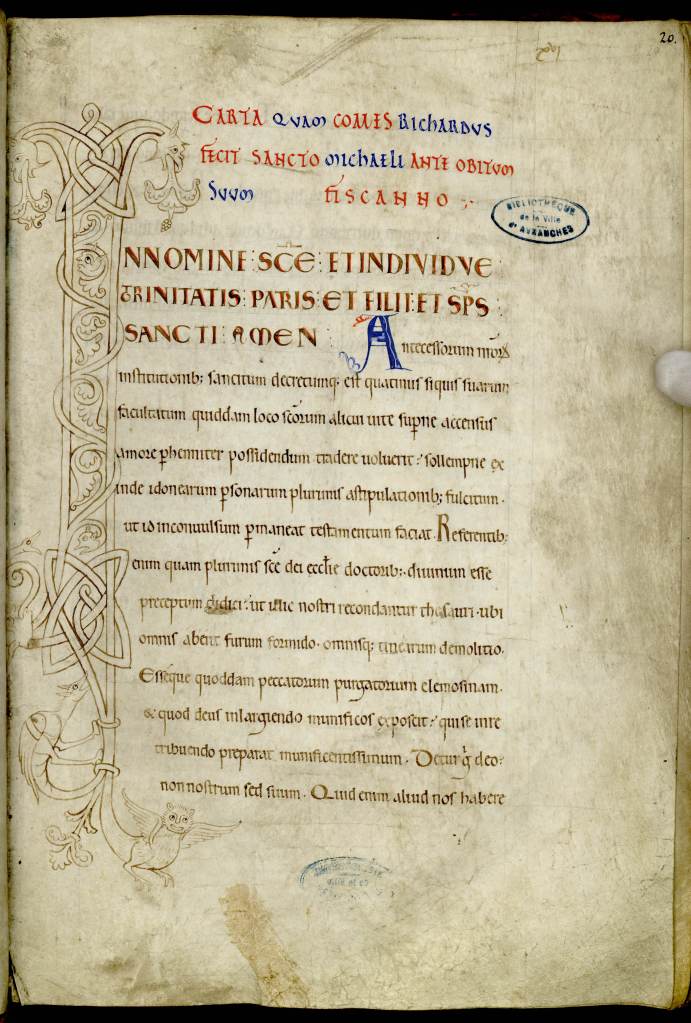 20.
CARTA QUAM COMES RICHARDUS
FECIT SANCTO MICHAELI ANTE OBITUM
SUUM FISCANNO
BIBLIOTHÈQUE
de la Ville
d'AVRANCHES
INNOMINE : SC̄E : ETINDIVIDVE
TRINITATIS : PATRIS : ET FILII : ET SP̄S
SANCTI : AMEN : Antecessorum
institutionib; sancitum decretumq; est quatinus siquis suarum
facultatum quiddam loco sc̄orum alicui uite sup̄ne accensus
amore p̱henniter possidendum tradere uoluerit : sollempne ex
inde idonearum p̱sonarum plurimis astipulationib; fulcitum .
ut id inconuulsum p̱maneat testamentum faciat . Referentib;
enim quam plurimis sc̄e dei eccl̄ie doctorib; . diuinum esse
preceptum didici : ut illic nostri recondantur thesauri . ubi
omnis aberit furum formido . omnisq; tinearum demolitio .
Esseque quoddam peccatorum purgatorium elemosinam .
& quod deus inlargiendo munificos exposcit : qui se in re
tribuendo preparat munificentissimum . Detur deo :
non nostrum sed suum . Quid enim aliud nos habere